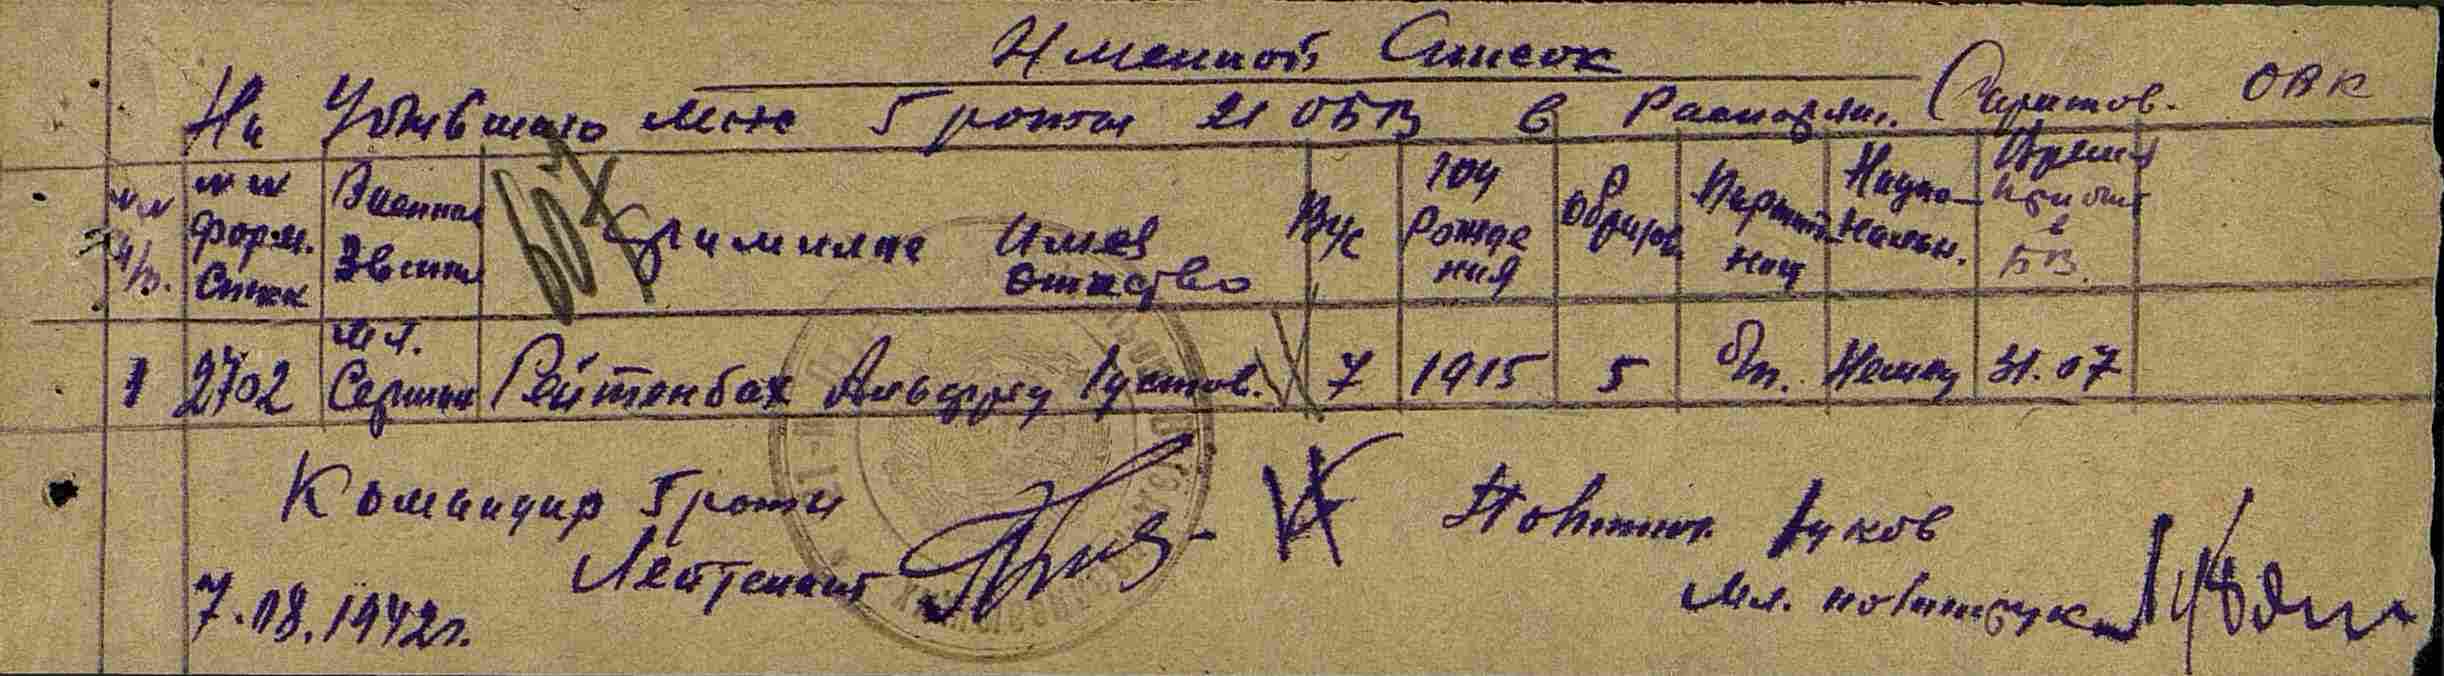 Именной Список
На Убывшего мнс 5 роты 21 ОБВ в Распоряж. Саратов. ОВК
№№ п/п. №№ форм. Списк Военная Звания Фамилия Имя отчество Вус год Рождения Образов Партийност Национальн. Время Прибыт в БВ.
1 2702 мл. Сержан Рейтенбах Альфред Густов. 7 1915 5 б/п. Немец 31.07
Командир 5 роты
Лейтенант
Политрук Гуков
мл. политрук
7.08.1942г.